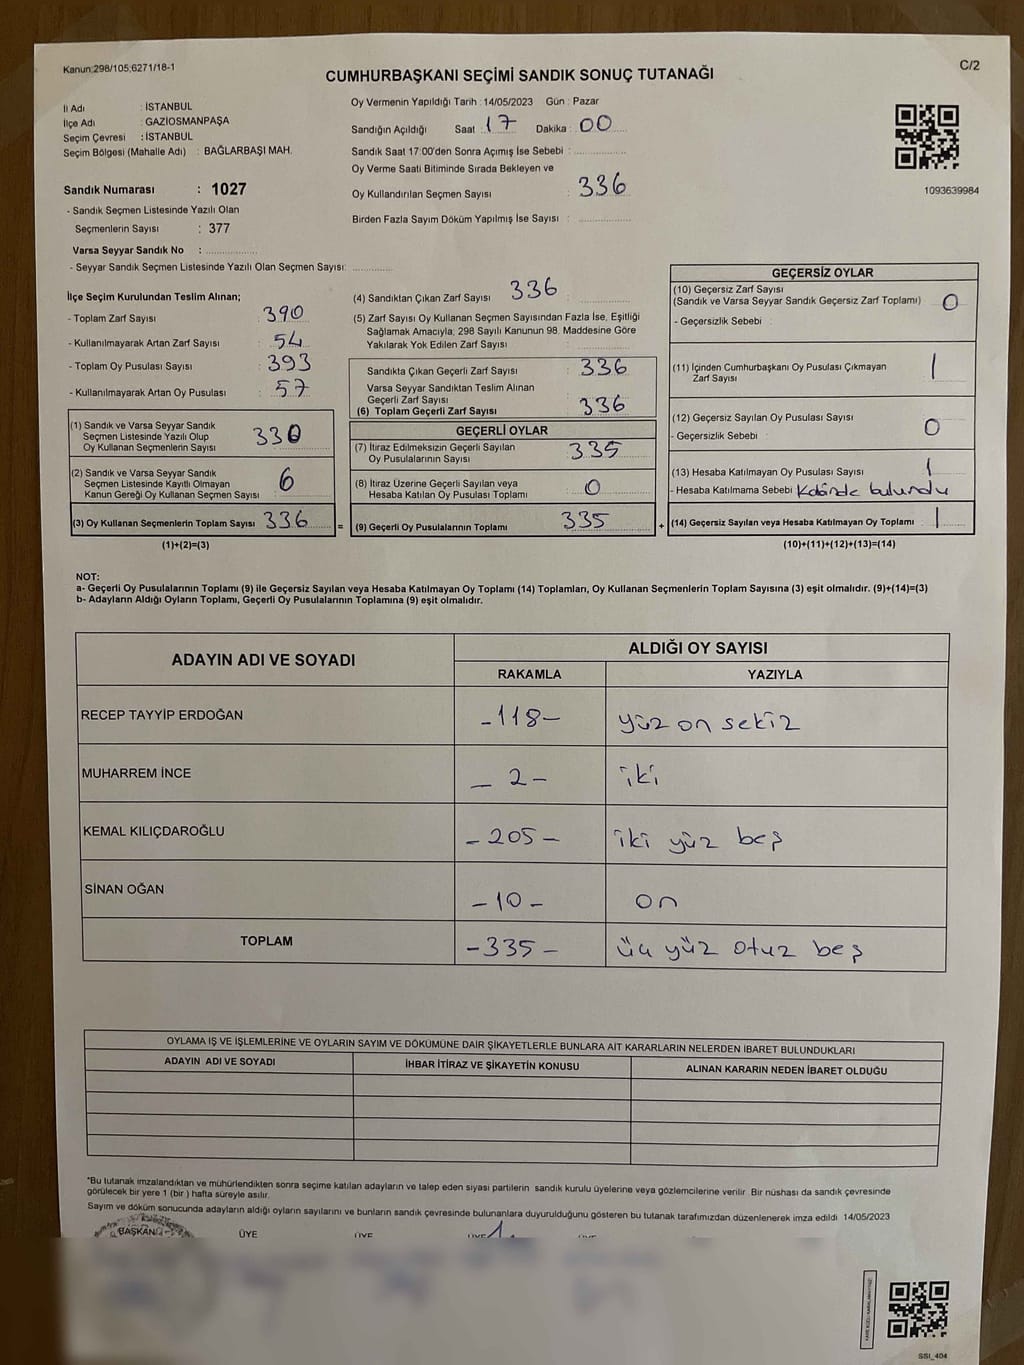 Kanun:298/105;6271/18-1
C/2
CUMHURBAŞKANI SEÇİMİ SANDIK SONUÇ TUTANAĞI
İl Adı : İSTANBUL
İlçe Adı : GAZİOSMANPAŞA
Seçim Çevresi : İSTANBUL
Seçim Bölgesi (Mahalle Adı) : BAĞLARBAŞI MAH.
Sandık Numarası : 1027
- Sandık Seçmen Listesinde Yazılı Olan
Seçmenlerin Sayısı : 377
Varsa Seyyar Sandık No : ..................
- Seyyar Sandık Seçmen Listesinde Yazılı Olan Seçmen Sayısı: ..............
Oy Vermenin Yapıldığı Tarih : 14/05/2023 Gün : Pazar
Sandığın Açıldığı Saat : 17 Dakika : 00
Sandık Saat 17:00'den Sonra Açımış İse Sebebi : ..................
Oy Verme Saati Bitiminde Sırada Bekleyen ve
Oy Kullandırılan Seçmen Sayısı : 336
Birden Fazla Sayım Döküm Yapılmış İse Sayısı : ..................
1093639984
İlçe Seçim Kurulundan Teslim Alınan;
- Toplam Zarf Sayısı : 390
- Kullanılmayarak Artan Zarf Sayısı : 54
- Toplam Oy Pusulası Sayısı : 393
- Kullanılmayarak Artan Oy Pusulası : 57
(1) Sandık ve Varsa Seyyar Sandık
Seçmen Listesinde Yazılı Olup
Oy Kullanan Seçmenlerin Sayısı 330
(2) Sandık ve Varsa Seyyar Sandık
Seçmen Listesinde Kayıtlı Olmayan
Kanun Gereği Oy Kullanan Seçmen Sayısı 6
(3) Oy Kullanan Seçmenlerin Toplam Sayısı 336 =
(1)+(2)=(3)
(4) Sandıktan Çıkan Zarf Sayısı : 336
(5) Zarf Sayısı Oy Kullanan Seçmen Sayısından Fazla İse, Eşitliği
Sağlamak Amacıyla, 298 Sayılı Kanunun 98. Maddesine Göre
Yakılarak Yok Edilen Zarf Sayısı :
Sandıkta Çıkan Geçerli Zarf Sayısı : 336
Varsa Seyyar Sandıktan Teslim Alınan
Geçerli Zarf Sayısı :
(6) Toplam Geçerli Zarf Sayısı 336
GEÇERLİ OYLAR
(7) İtiraz Edilmeksizin Geçerli Sayılan
Oy Pusulalarının Sayısı 335
(8) İtiraz Üzerine Geçerli Sayılan veya
Hesaba Katılan Oy Pusulası Toplamı 0
(9) Geçerli Oy Pusulalarının Toplamı 335 +
GEÇERSİZ OYLAR
(10) Geçersiz Zarf Sayısı
(Sandık ve Varsa Seyyar Sandık Geçersiz Zarf Toplamı) 0
- Geçersizlik Sebebi :
(11) İçinden Cumhurbaşkanı Oy Pusulası Çıkmayan
Zarf Sayısı 1
(12) Geçersiz Sayılan Oy Pusulası Sayısı 0
- Geçersizlik Sebebi :
(13) Hesaba Katılmayan Oy Pusulası Sayısı 1
- Hesaba Katılmama Sebebi bulundu
(14) Geçersiz Sayılan veya Hesaba Katılmayan Oy Toplamı 1
(10)+(11)+(12)+(13)=(14)
NOT:
a- Geçerli Oy Pusulalarının Toplamı (9) ile Geçersiz Sayılan veya Hesaba Katılmayan Oy Toplamı (14) Toplamları, Oy Kullanan Seçmenlerin Toplam Sayısına (3) eşit olmalıdır. (9)+(14)=(3)
b- Adayların Aldığı Oyların Toplamı, Geçerli Oy Pusulalarının Toplamına (9) eşit olmalıdır.
ADAYIN ADI VE SOYADI ALDIĞI OY SAYISI
RAKAMLA YAZIYLA
RECEP TAYYİP ERDOĞAN -118- yüz on sekiz
MUHARREM İNCE - 2 - iki
KEMAL KILIÇDAROĞLU - 205 - iki yüz beş
SİNAN OĞAN - 10 - on
TOPLAM - 335 - üç yüz otuz beş
OYLAMA İŞ VE İŞLEMLERİNE VE OYLARIN SAYIM VE DÖKÜMÜNE DAİR ŞİKAYETLERLE BUNLARA AİT KARARLARIN NELERDEN İBARET BULUNDUKLARI
ADAYIN ADI VE SOYADI İHBAR İTİRAZ VE ŞİKAYETİN KONUSU ALINAN KARARIN NEDEN İBARET OLDUĞU
"Bu tutanak imzalandıktan ve mühürlendikten sonra seçime katılan adayların ve talep eden siyasi partilerin sandık kurulu üyelerine veya gözlemcilerine verilir. Bir nüshası da sandık çevresinde
görülecek bir yere 1 (bir) hafta süreyle asılır.
Sayım ve döküm sonucunda adayların aldığı oyların sayılarını ve bunların sandık çevresinde bulunanlara duyurulduğunu gösteren bu tutanak tarafımızdan düzenlenerek imza edildi 14/05/2023
BAŞKAN ÜYE ÜYE ÜYE ÜYE
SSI_404